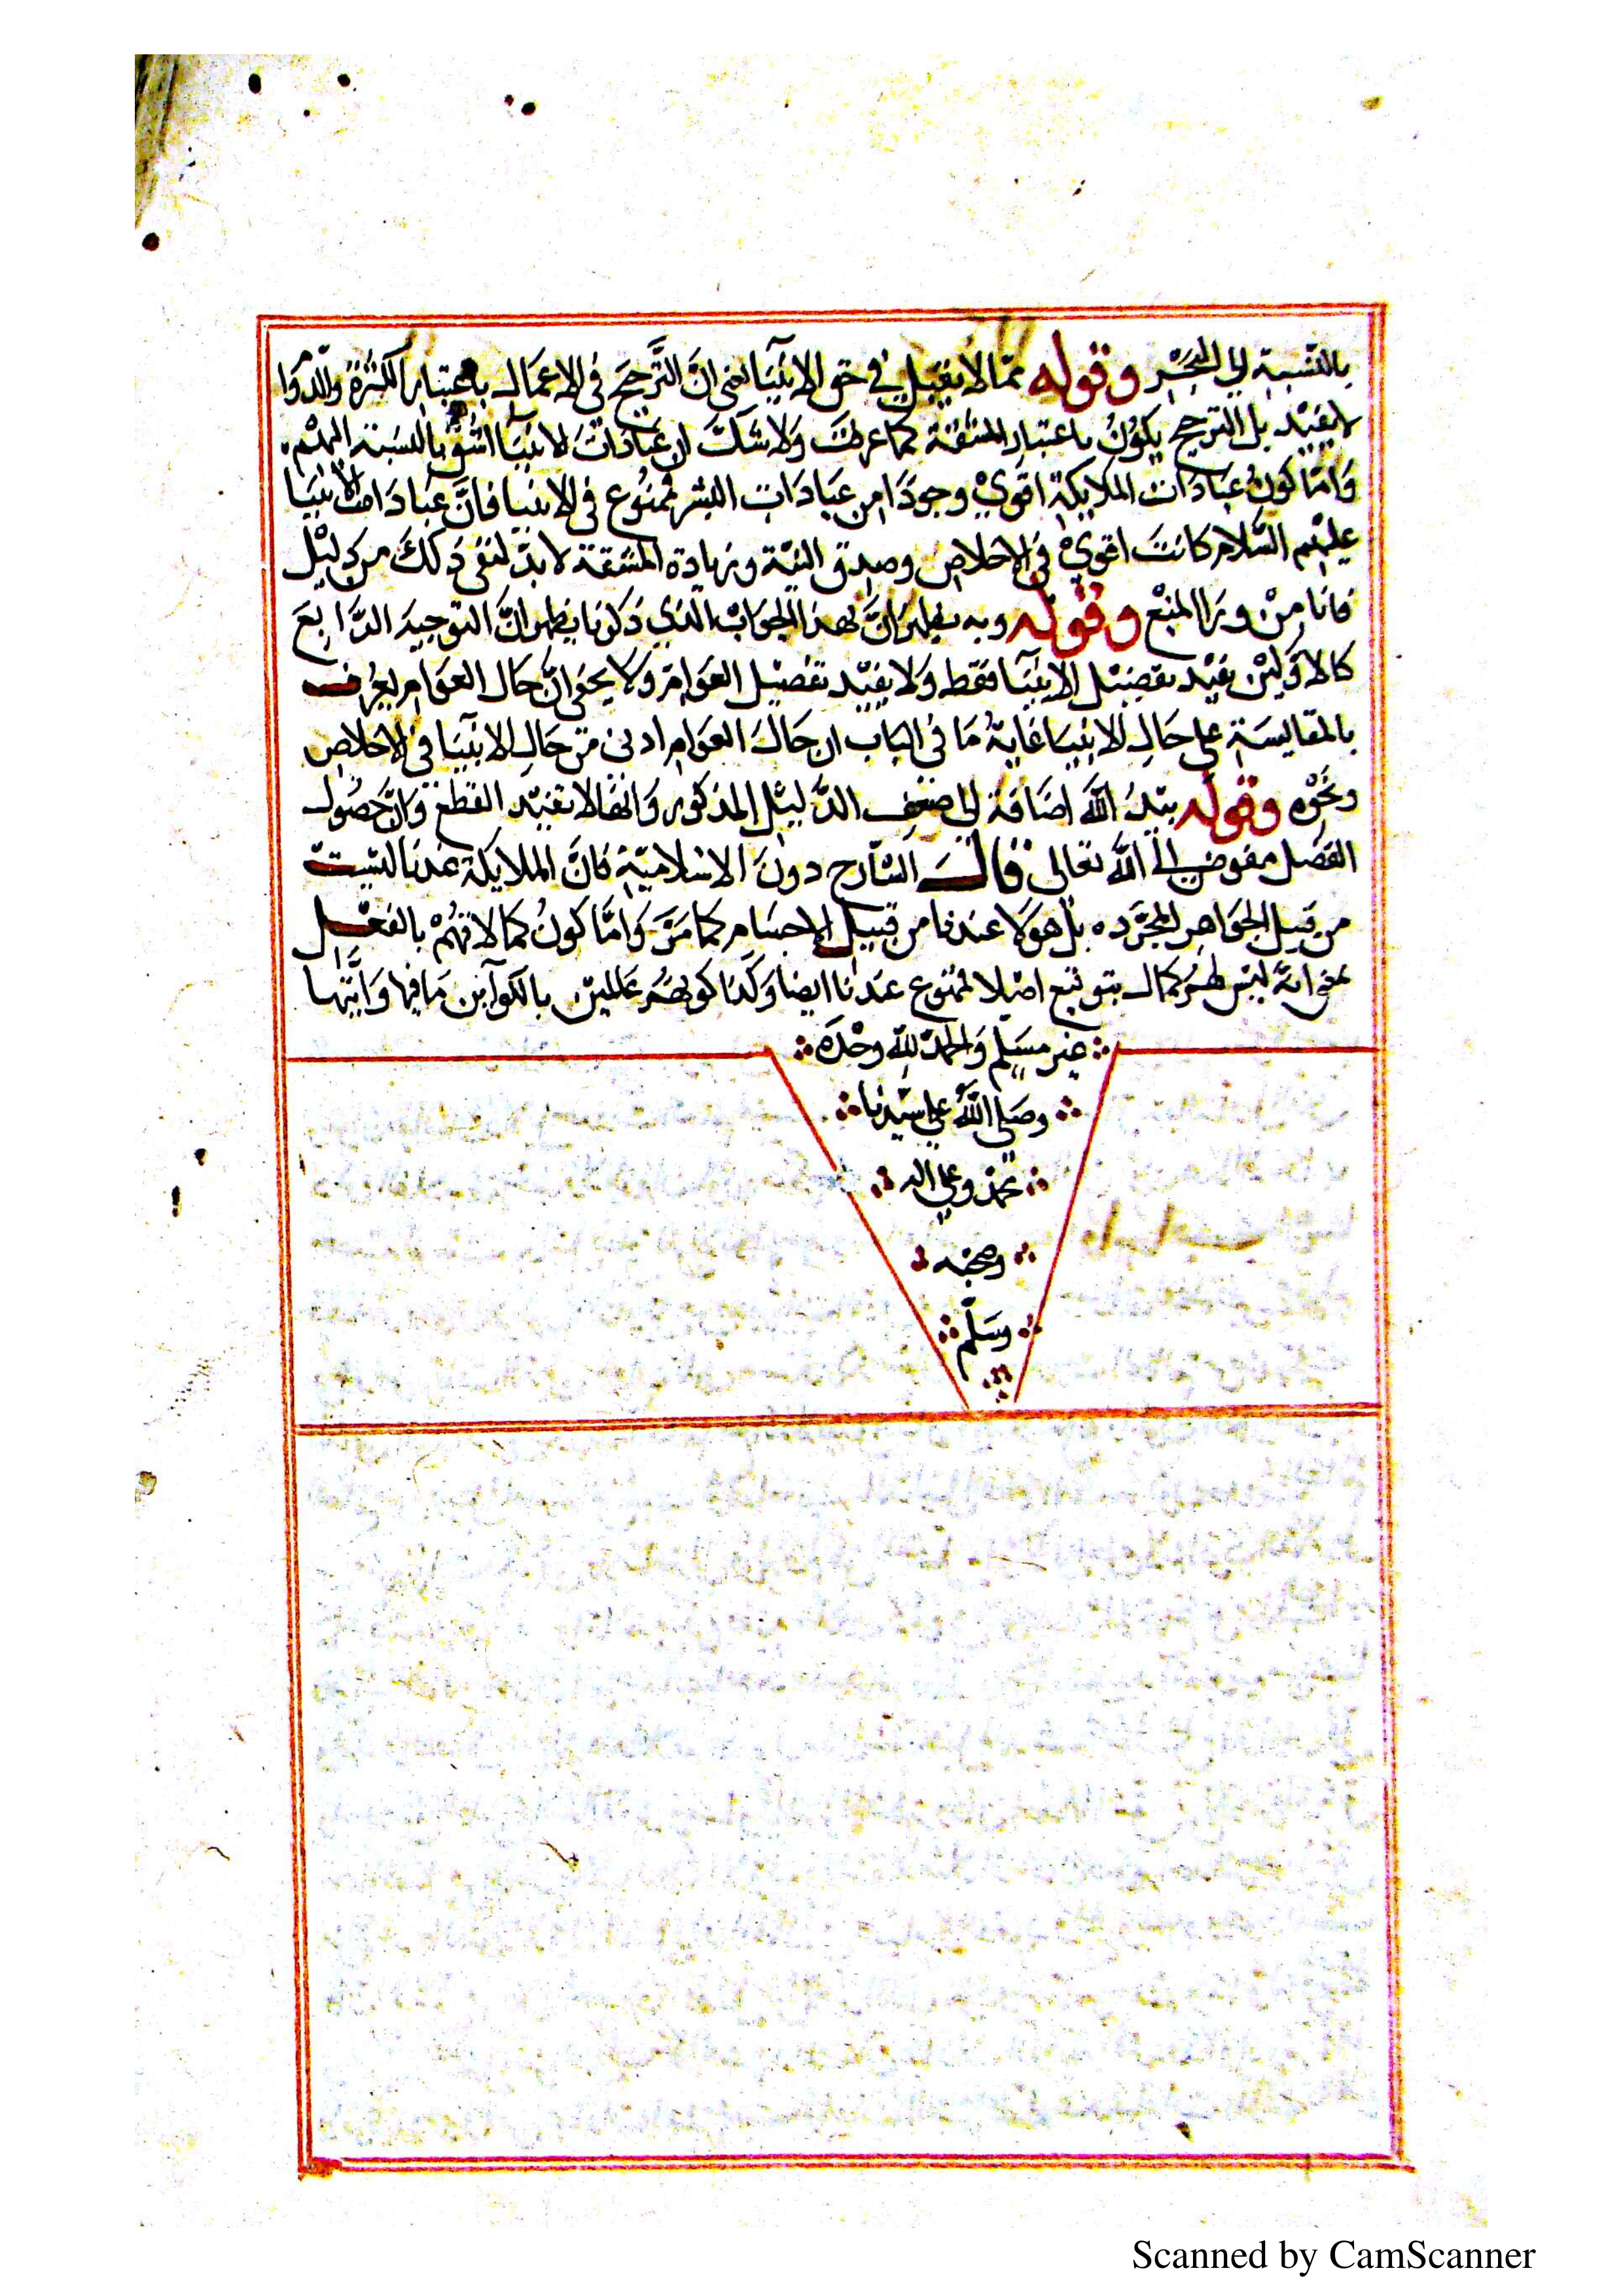 بالنسبة الى البحر وقوله مما لا يقبل في حق الانبيآ لعنى انَّ التَّرجيحَ في الاعمَال باعتبار الكثرة والدّوَا
لا يفيد بل الترجيح يكونُ باعتبار المشقة كما عرفتَ وَلا شَكَّ ان عبَادَاتَ الانبيَا اشقُّ بالنسبة اليهم
وَامَّا كونُ عبَادَات الملايكة اقويْ وجودَا من عبَادَات البشر فممنُوع في الانبيا فانَّ عبَادَات الانبيَا
عليهم السَّلام كانتَ اقويْ في الاخلاص وصدق النيّة وزيادة المشقة لا بدّ لنفى ذَلكَ من دليْل
فانا منْ ورَا المنْع وقوله وبه يظهر انَّ بهذا الجوَابْ الذي ذكرنا يظهر انَّ التوجيهَ الرَّابعَ
كالاوّليْن يفيْد تفضيْل الانبيَآ فقط وَلا يفيْد تفضيْل العوَام وَلا يخفى انَّ حَال العوَام يعرف
بالمقايسَة على حَال الانبيَا غايةُ مَا في البَاب ان حَالَ العوَام ادنى من حَال الانبيَآ في الاخلاص
ونحْوه وقوله بيَدُ اللهَ اضَافة الى ضعف الدَّليْل المذكور وَانها لا تفيْد القطعَ وَانَّ حصُول
الفضل مفوض الى اللهَ تعَالى قال الشّارح دونَ الاسْلاميّة فانَّ الملايكة عندنا ليست
من قبيل الجوَاهر المجرَّده بل هوَلا عندنا من قبيل الاجسَام كما مَرَّ وَامَّا كونُ كمالاتهُمْ بالفعْل
بمعنى انَّه ليْس لهُم كمال يتوقع اصْلا فممنوع عندَنا ايضا وَكذَا كونهُم عَالميْن بالكوآئن مَا فيها وَاٰتيها
غير مسَلم وَالحمدُ لله وحْدَه
وصَلى اللهُ على سيّدنا
محمد وعلى اله
وصحبه
وسَلّم
Scanned by CamScanner